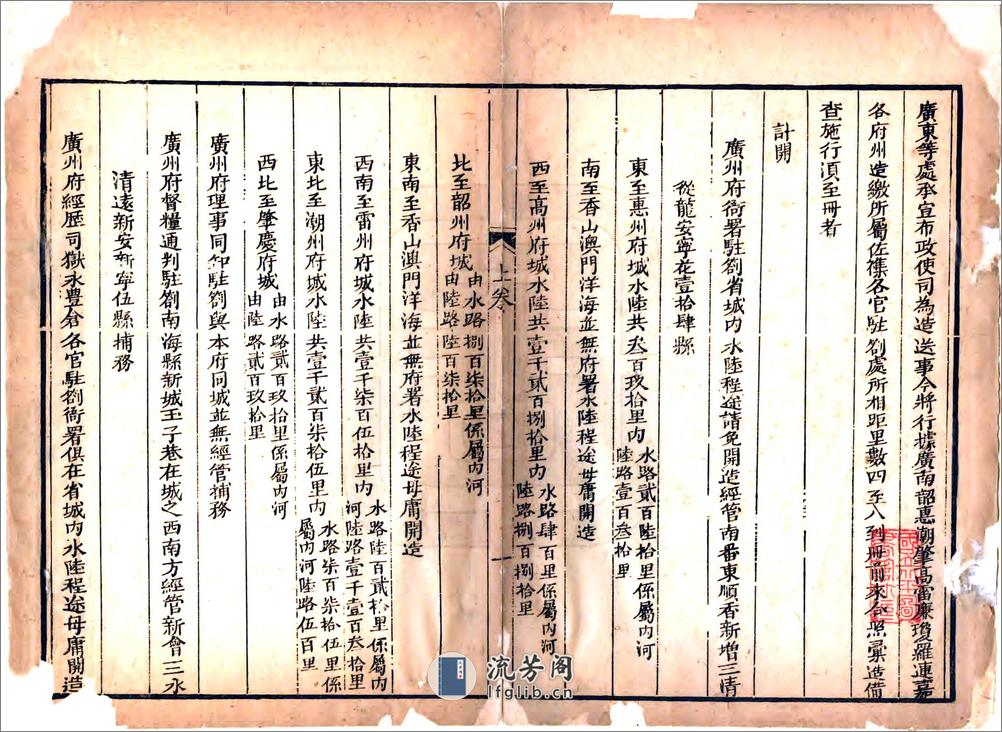 廣東等處承宣布政使司為造送事今將行據廣南韶惠潮肇高雷廉瓊羅連嘉
各府州造繳所屬佐雜各官駐劄處所相距里數四至八到冊前來合照彙造備
查施行須至冊者
計開
廣州府衙署駐劄省城內水陸程途請免開造經管南番東順香新增三清
從龍安寧花壹拾肆縣
東至惠州府城水陸共叁百玖拾里內水路貳百陸拾里係屬內河
陸路壹百叁拾里
南至香山澳門洋海並無府署水陸程途毋庸開造
西至高州府城水陸共壹千貳百捌拾里內水路肆百里係屬內河
陸路捌百捌拾里
上卷
一
北至韶州府城由水路捌百柒拾里係屬內河
由陸路陸百柒拾里
東南至香山澳門洋海並無府署水陸程途毋庸開造
西南至雷州府城水陸共壹千柒百伍拾里內水路陸百貳拾里係屬內
河陸路壹千壹百叁拾里
東北至潮州府城水陸共壹千貳百柒拾伍里內水路柒百柒拾伍里係
屬內河陸路伍百里
西北至肇慶府城由水路貳百玖拾里係屬內河
由陸路貳百玖拾里
廣州府理事同知駐劄與本府同城並無經管捕務
廣州府督糧通判駐劄南海縣新城玉子巷在城之西南方經管新會三水
清遠新安新寧伍縣捕務
廣州府經歷司獄永豐倉各官駐劄衙署俱在省城內水陸程途毋庸開造
流芳阁
lfglib.cn